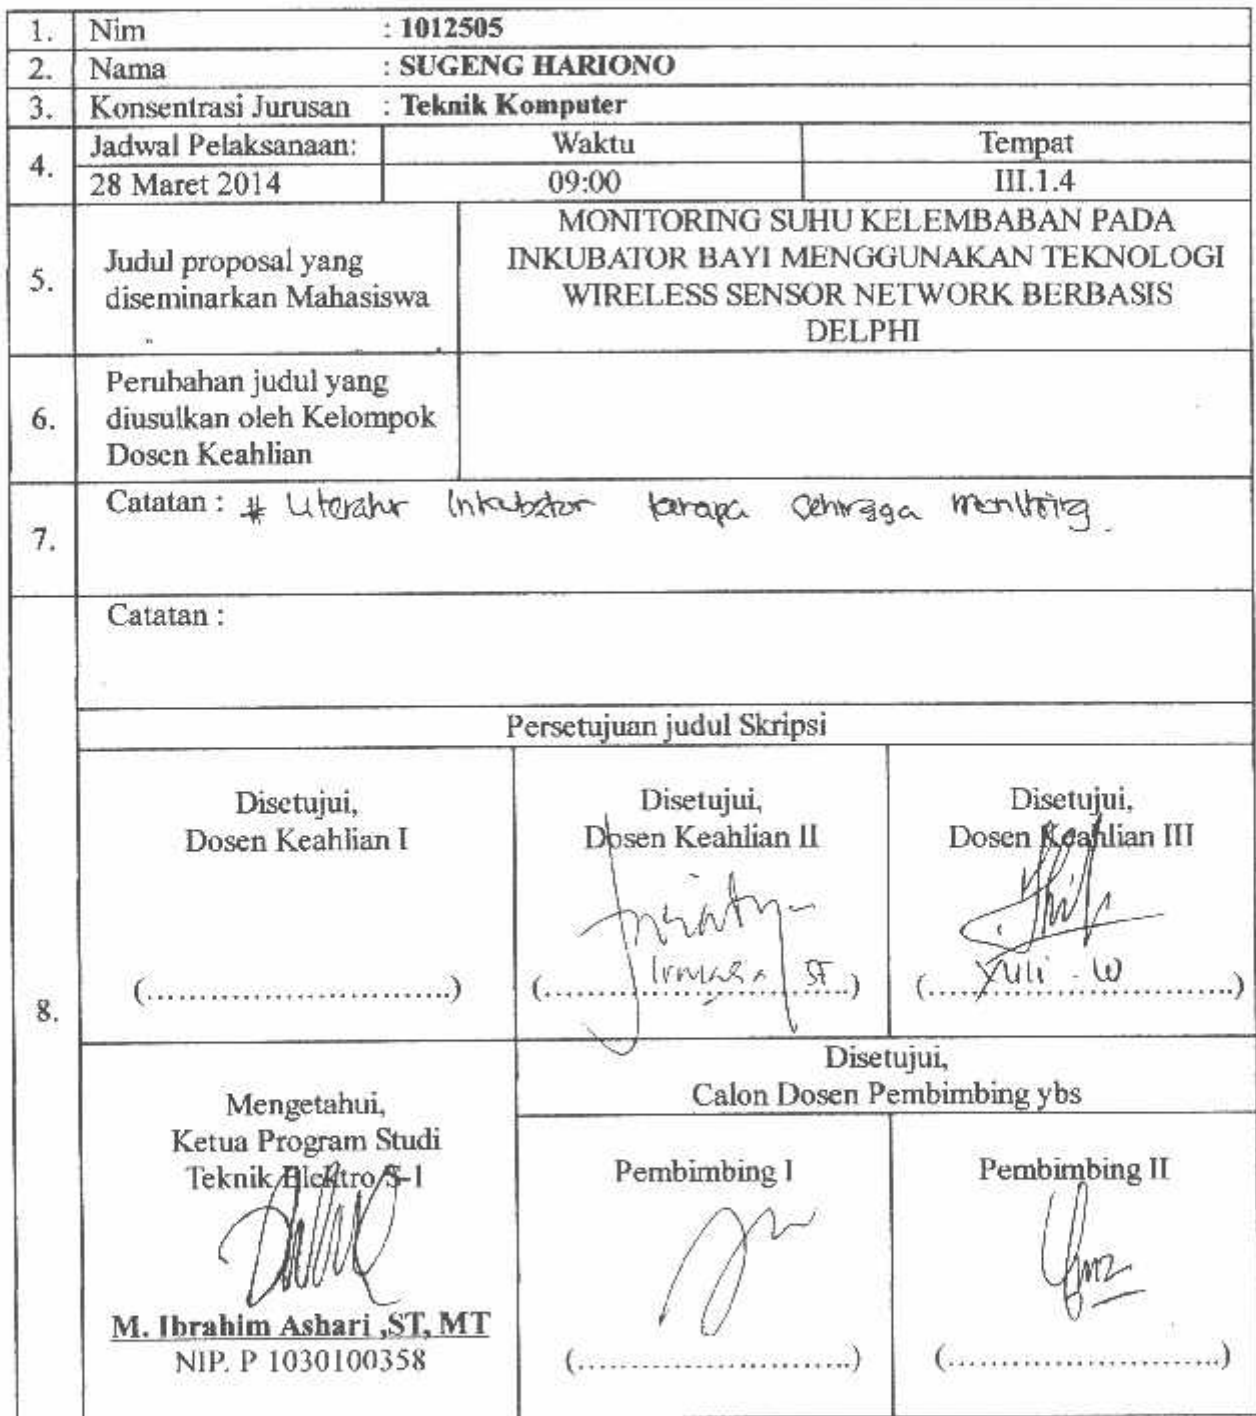 1. Nim : 1012505
2. Nama : SUGENG HARIONO
3. Konsentrasi Jurusan : Teknik Komputer
4. Jadwal Pelaksanaan: Waktu Tempat
28 Maret 2014 09:00 III.1.4
5. Judul proposal yang diseminarkan Mahasiswa
MONITORING SUHU KELEMBABAN PADA
INKUBATOR BAYI MENGGUNAKAN TEKNOLOGI
WIRELESS SENSOR NETWORK BERBASIS
DELPHI
6. Perubahan judul yang
diusulkan oleh Kelompok
Dosen Keahlian
7. Catatan : # Literatur Inkubator sehingga monitoring
8. Catatan :
Persetujuan judul Skripsi
Disetujui,
Dosen Keahlian I
(..............................)
Disetujui,
Dosen Keahlian II
(.............................. ST.)
Disetujui,
Dosen Keahlian III
(Yuli . W)
Mengetahui,
Ketua Program Studi
Teknik Elektro S-1
M. Ibrahim Ashari ,ST, MT
NIP. P 1030100358
Disetujui,
Calon Dosen Pembimbing ybs
Pembimbing I
(..............................)
Pembimbing II
(..............................)